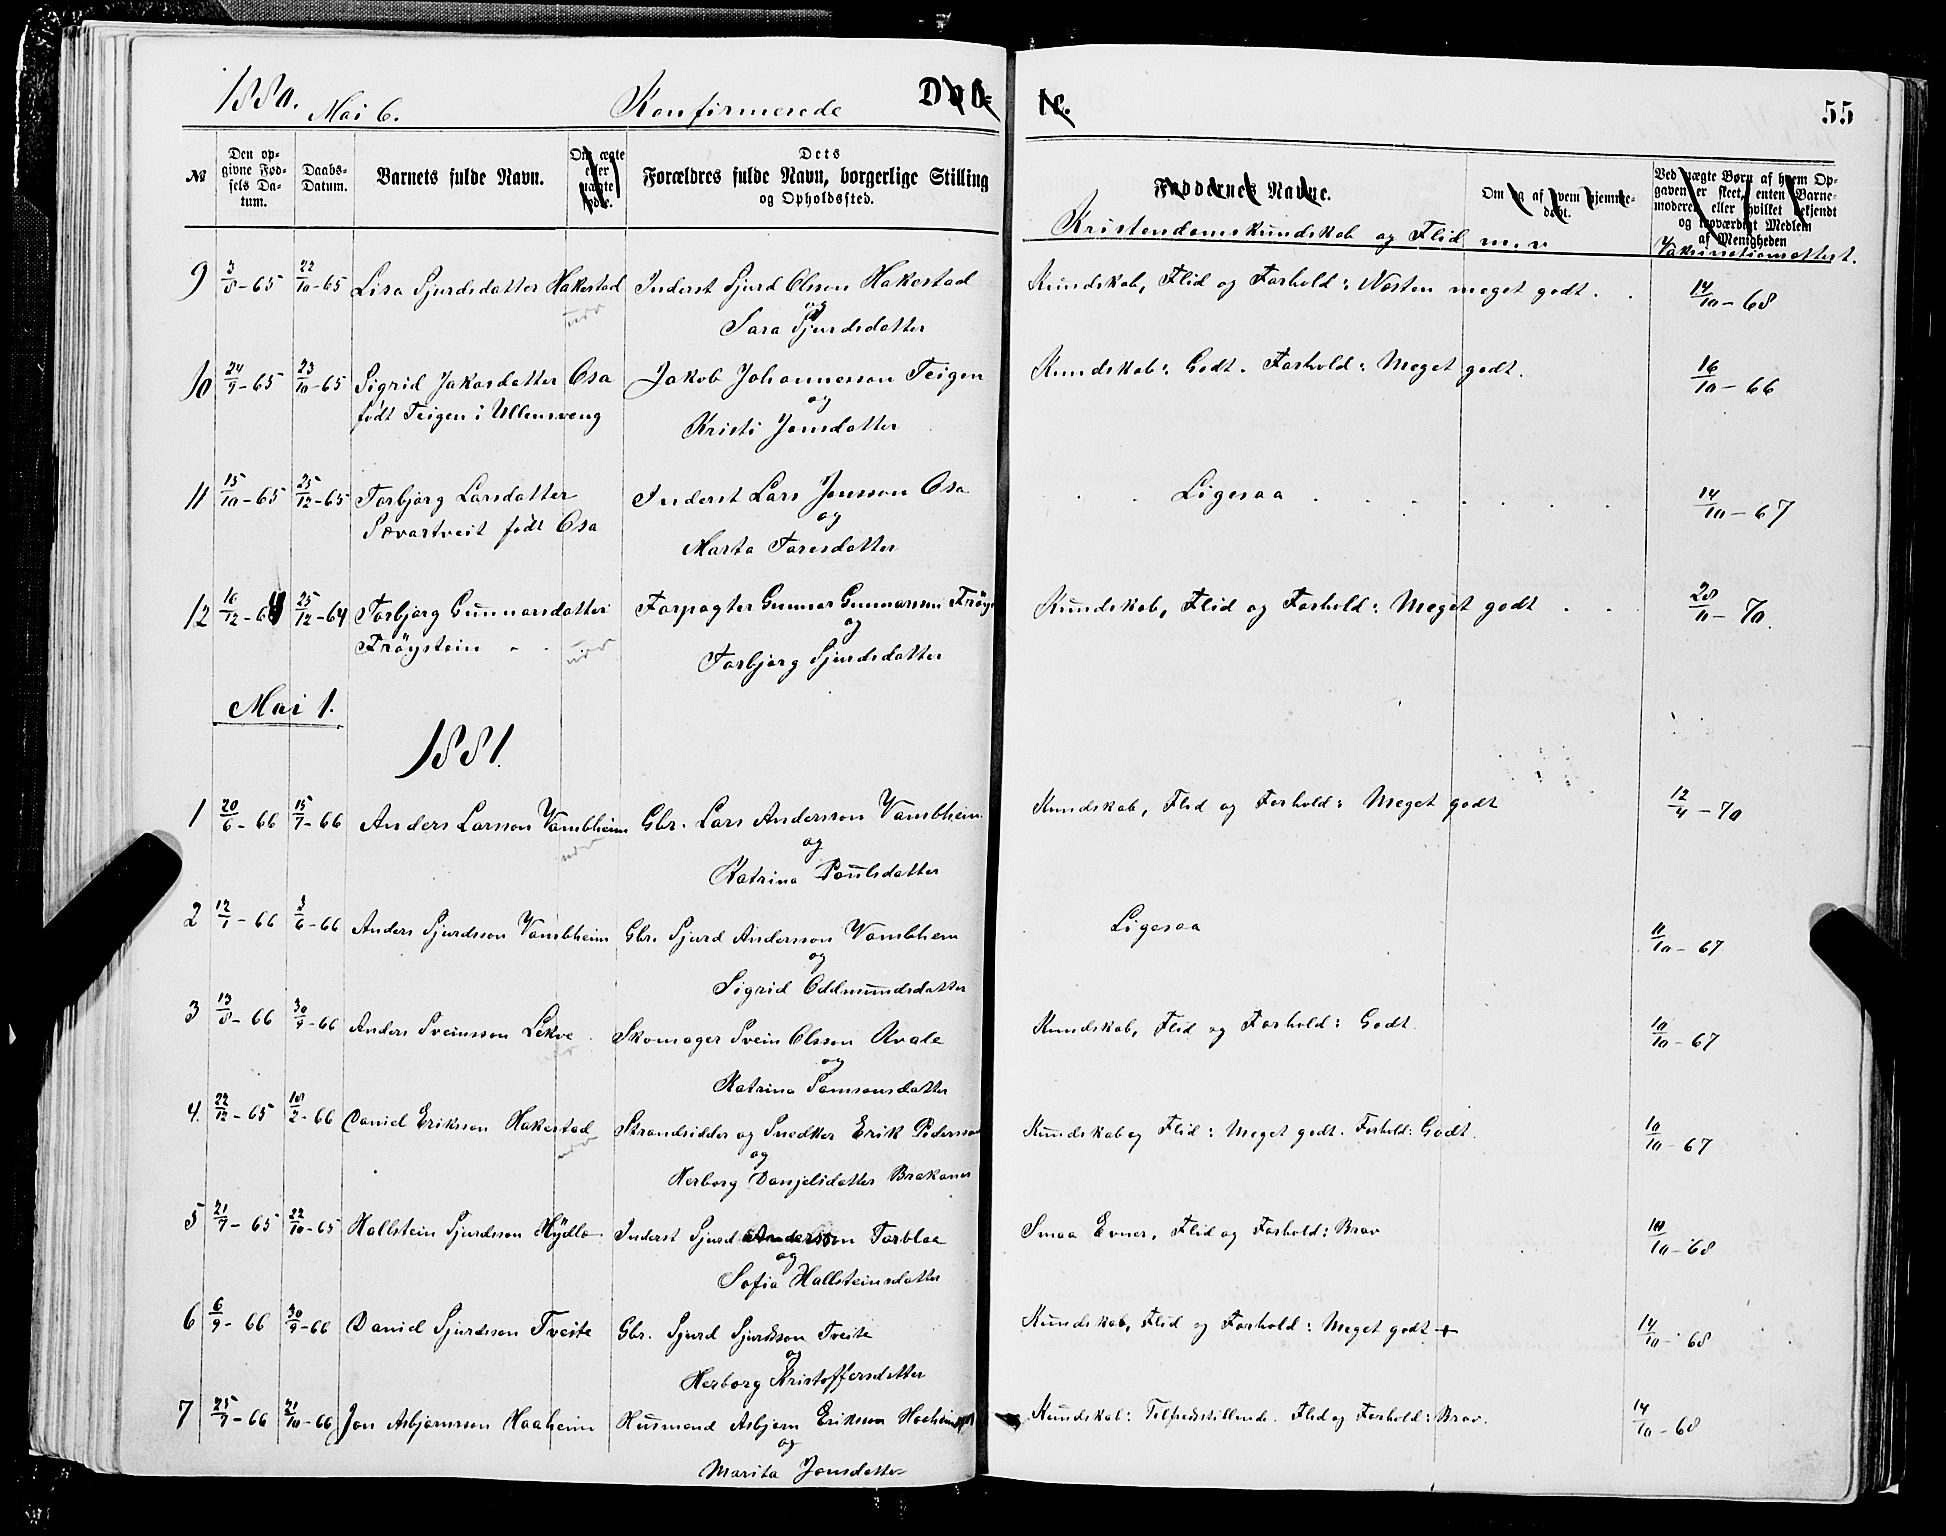 1880. Mai 6. Konfirmerede Daab=
te. 55
№ Den opgivne Fødsels Datum. Daabs-Datum. Barnets fulde Navn. Om ægte eller uægte født. Dets Forældres fulde Navn, borgerlige Stilling og Opholdssted.
Faddernes Navne. Om og af hvem hjemmedøbt. Ved uægte Børn af hvem Opgaven er skeet, enten Barnemoderen eller hvilket bekjendt og troværdigt Medlem af Menigheden
Kristendomskundskab og Flid m. v Vaksinationsattest.
9 3/8-65 22/10-65 Lisa Sjurdsdatter Hakestad Inderst Sjurd Olsson Hakestad Kundskab, Flid og Forhold: Næsten meget godt. 14/10-68
og
Sara Sjurdsdatter
10 24/9-65 23/10-65 Sigrid Jakosdatter Osa Jakob Johannesson Teigen Kundskab: Godt. Forhold: Meget godt. 16/10-66
født Teigen i Ullensveng og
Kristi Jonsdatter
11 15/10-65 25/12-65 Torbjørg Larsdatter Inderst Lars Jonsson Osa Ligesaa 14/10-67
Sævartveit født Osa og
Marta Toresdatter
12 16/12-64 25/12-64 Torbjørg Gunnarsdatter Forpagter Gunnar Gunnarsson Frøys Kundskab, Flid og Forhold: Meget godt 28/11-70.
Frøystein og
Torbjørg Sjurdsdatter
Mai 1.
1881.
1 20/6-66 15/7-66 Anders Larsson Vambheim Gbr. Lars Andersson Vambheim Kundskab, Flid og Forhold: Meget godt 12/4-70
og
Katrina Poulsdatter
2 12/1-66 3/6-66 Anders Sjurdsson Vambheim Gbr. Sjurd Andersson Vambheim Ligesaa 11/10-67
og
Sigrid Oddmundsdatter
3 13/8-66 30/9-66 Anders Sveinsson Lekve Skomager Svein Olsson Kvale Kundskab, Flid og Forhold: Godt. 10/10-67
og
Katrina Samsonsdatter
4. 22/12-65 18/2-66 Daniel Eriksson Hakestad Strandsidder og Snedker Erik Pedersson Kundskab og Flid: Meget godt. Forhold: Godt. 10/10-67
og
Herborg Danjelsdatter Brakanes
5 21/9-65 22/10-65 Hallstein Sjurdsson Hydle Inderst Sjurd Andersson Torblaa Smaa Evner, Flid og Forhold: Brav 10/10-68
og
Sofia Hallsteinsdatter
6 6/9-66 30/9-66 Daniel Sjurdsson Tveite Gbr. Sjurd Sjurdsson Tveite Kundskab, Flid og Forhold: Meget godt + 14/10-68
og
Herborg Kristoffersdatter
7 25/7-66 21/10-66 Jon Asbjørnsson Haaheim Husmand Asbjørn Eriksson Haaheim Kundskab: Tilfredsstillende. Flid og Forhold: Brav. 14/10-68
og
Marita Jonsdatter